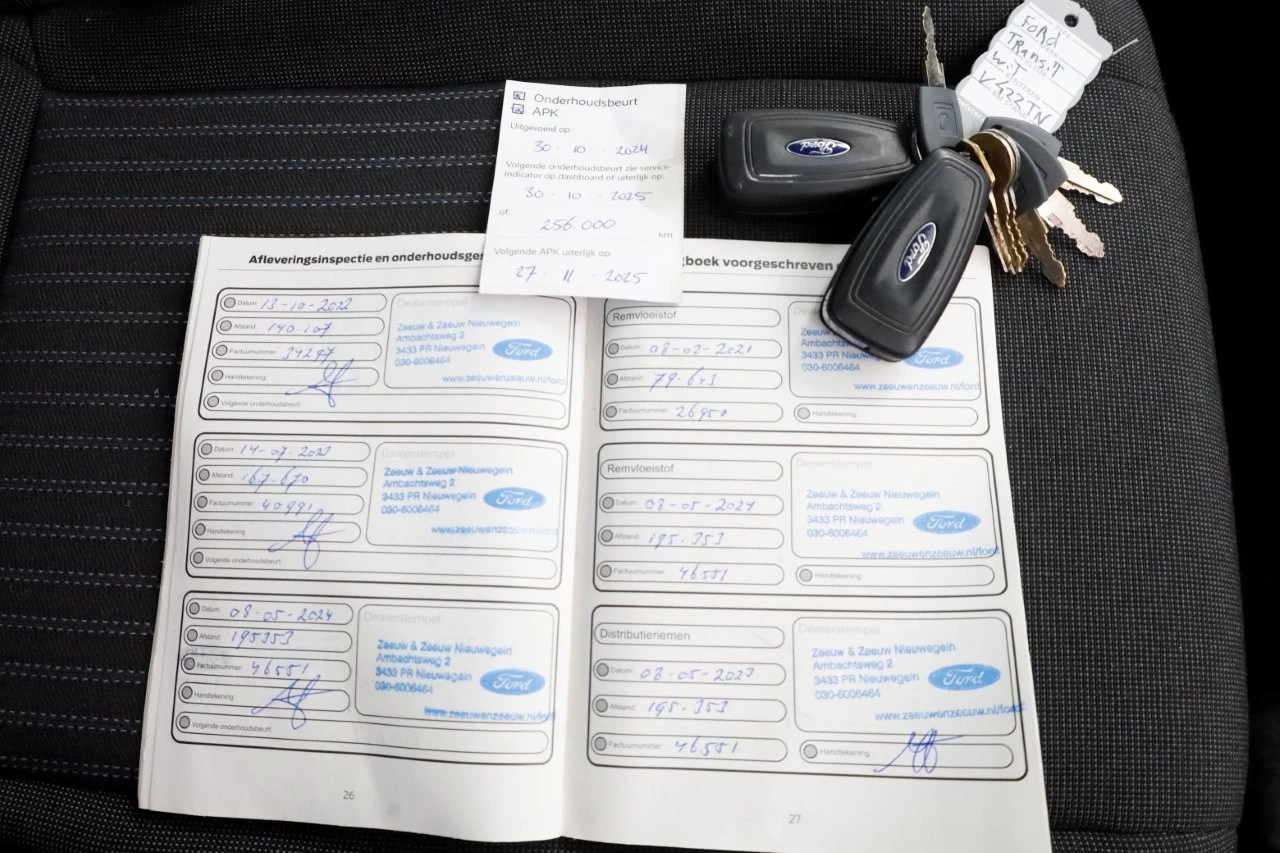 FORD
TRansiT
WiT
V422TN
Ford
Ford
Onderhoudsbeurt
APK
Uitgevoerd op:
30 - 10 - 2024
Volgende onderhoudsbeurt zie service-
indicator op dashboard of uiterlijk op:
30 - 10 - 2025
of:
256.000
km
Volgende APK uiterlijk op:
27 - 11 - 2025
Afleveringsinspectie en onderhoudsges
Datum: 13-10-2022
Afstand: 140.107
Factuurnummer: 34297
Handtekening:
Volgende onderhoudsbeurt:
Dealerstempel
Zeeuw & Zeeuw Nieuwegein
Ambachtsweg 2
3433 PR Nieuwegein
030-6006464
Ford
www.zeeuwenzeeuw.nl/ford
Datum: 14-07-2023
Afstand: 167-670
Factuurnummer: 40991
Handtekening:
Volgende onderhoudsbeurt:
Dealerstempel
Zeeuw & Zeeuw Nieuwegein
Ambachtsweg 2
3433 PR Nieuwegein
030-6006464
Ford
www.zeeuwenzeeuw.nl/ford
Datum: 08-05-2024
Afstand: 195353
Factuurnummer: 46551
Handtekening:
Volgende onderhoudsbeurt:
Dealerstempel
Zeeuw & Zeeuw Nieuwegein
Ambachtsweg 2
3433 PR Nieuwegein
030-6006464
Ford
www.zeeuwenzeeuw.nl/ford
26
gboek voorgeschreven
Remvloeistof
Datum: 08-02-2021
Afstand:
Factuurnummer: 26950
Zeeuw
Ambachtsweg
3433 PR Nieuwegein
030-6006464
Ford
www.zeeuwenzeeuw.nl/ford
Handtekening:
Remvloeistof
Datum: 08-05-2024
Afstand: 195.353
Factuurnummer: 46551
Dealerstempel
Zeeuw & Zeeuw Nieuwegein
Ambachtsweg 2
3433 PR Nieuwegein
030-6006464
Ford
www.zeeuwenzeeuw.nl/ford
Handtekening:
Distributieriemen
Datum: 08-05-2027
Afstand: 195.353
Factuurnummer: 46551
Dealerstempel
Zeeuw & Zeeuw Nieuwegein
Ambachtsweg 2
3433 PR Nieuwegein
030-6006464
Ford
www.zeeuwenzeeuw.nl/ford
Handtekening:
27